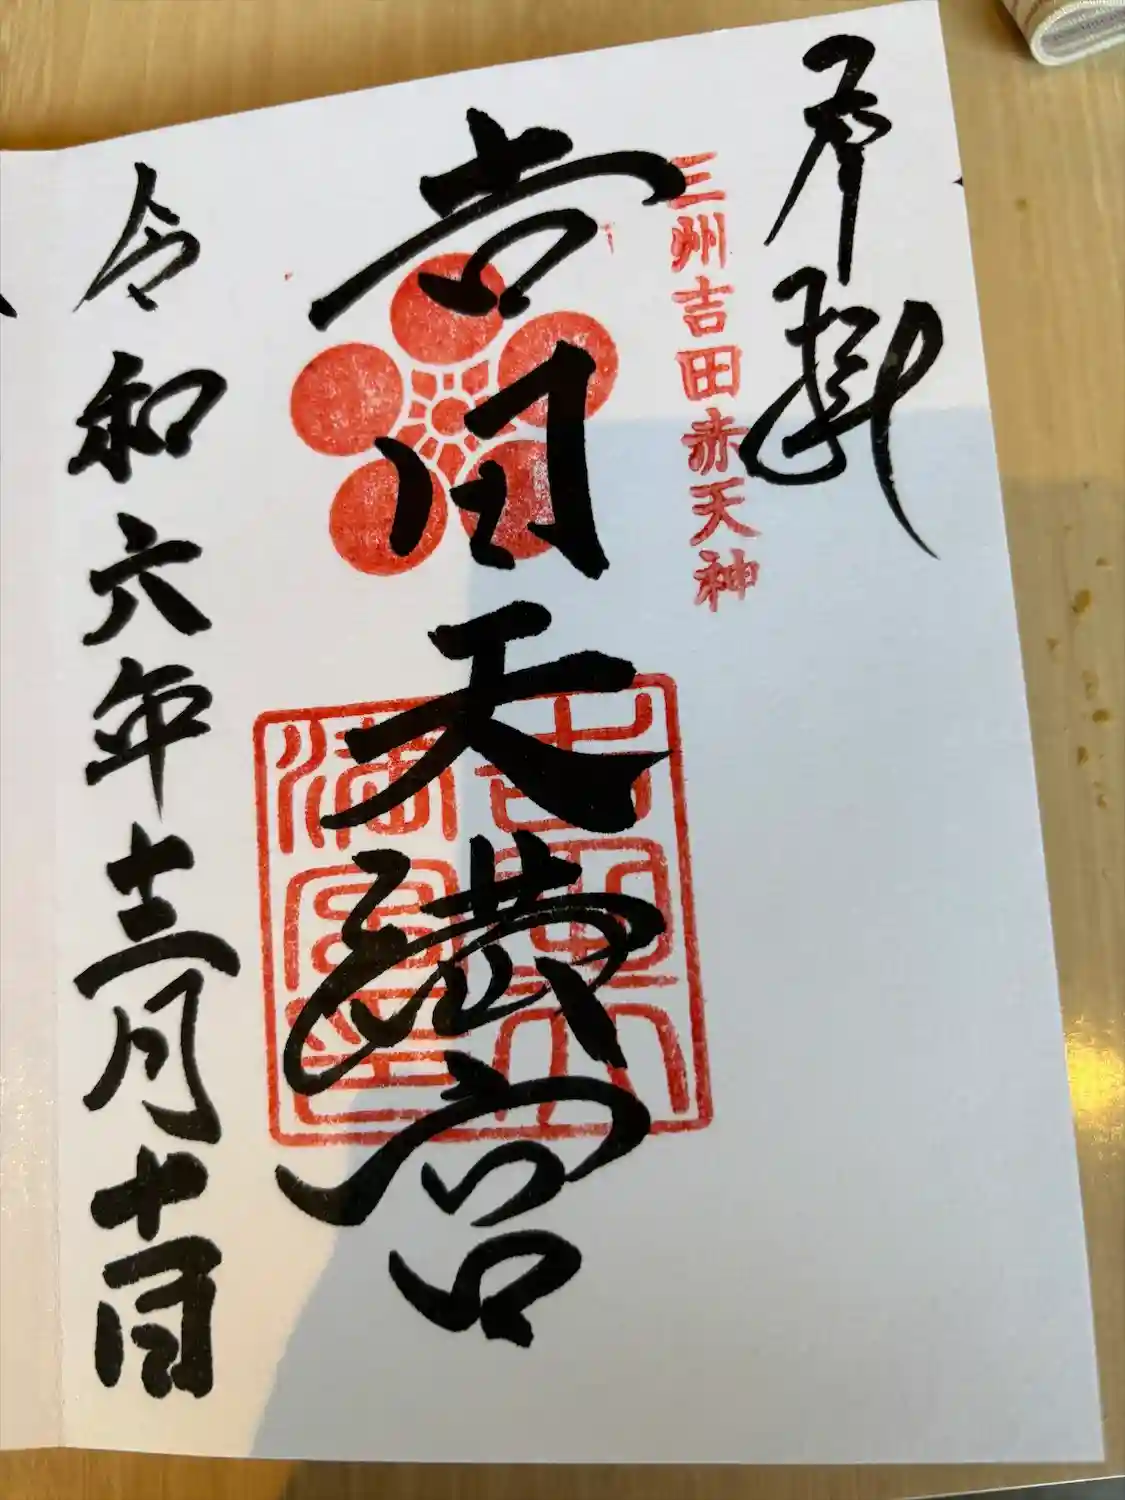 奉拝
三州吉田赤天神
吉田天満宮
吉田天満宮印
令和六年十二月十日